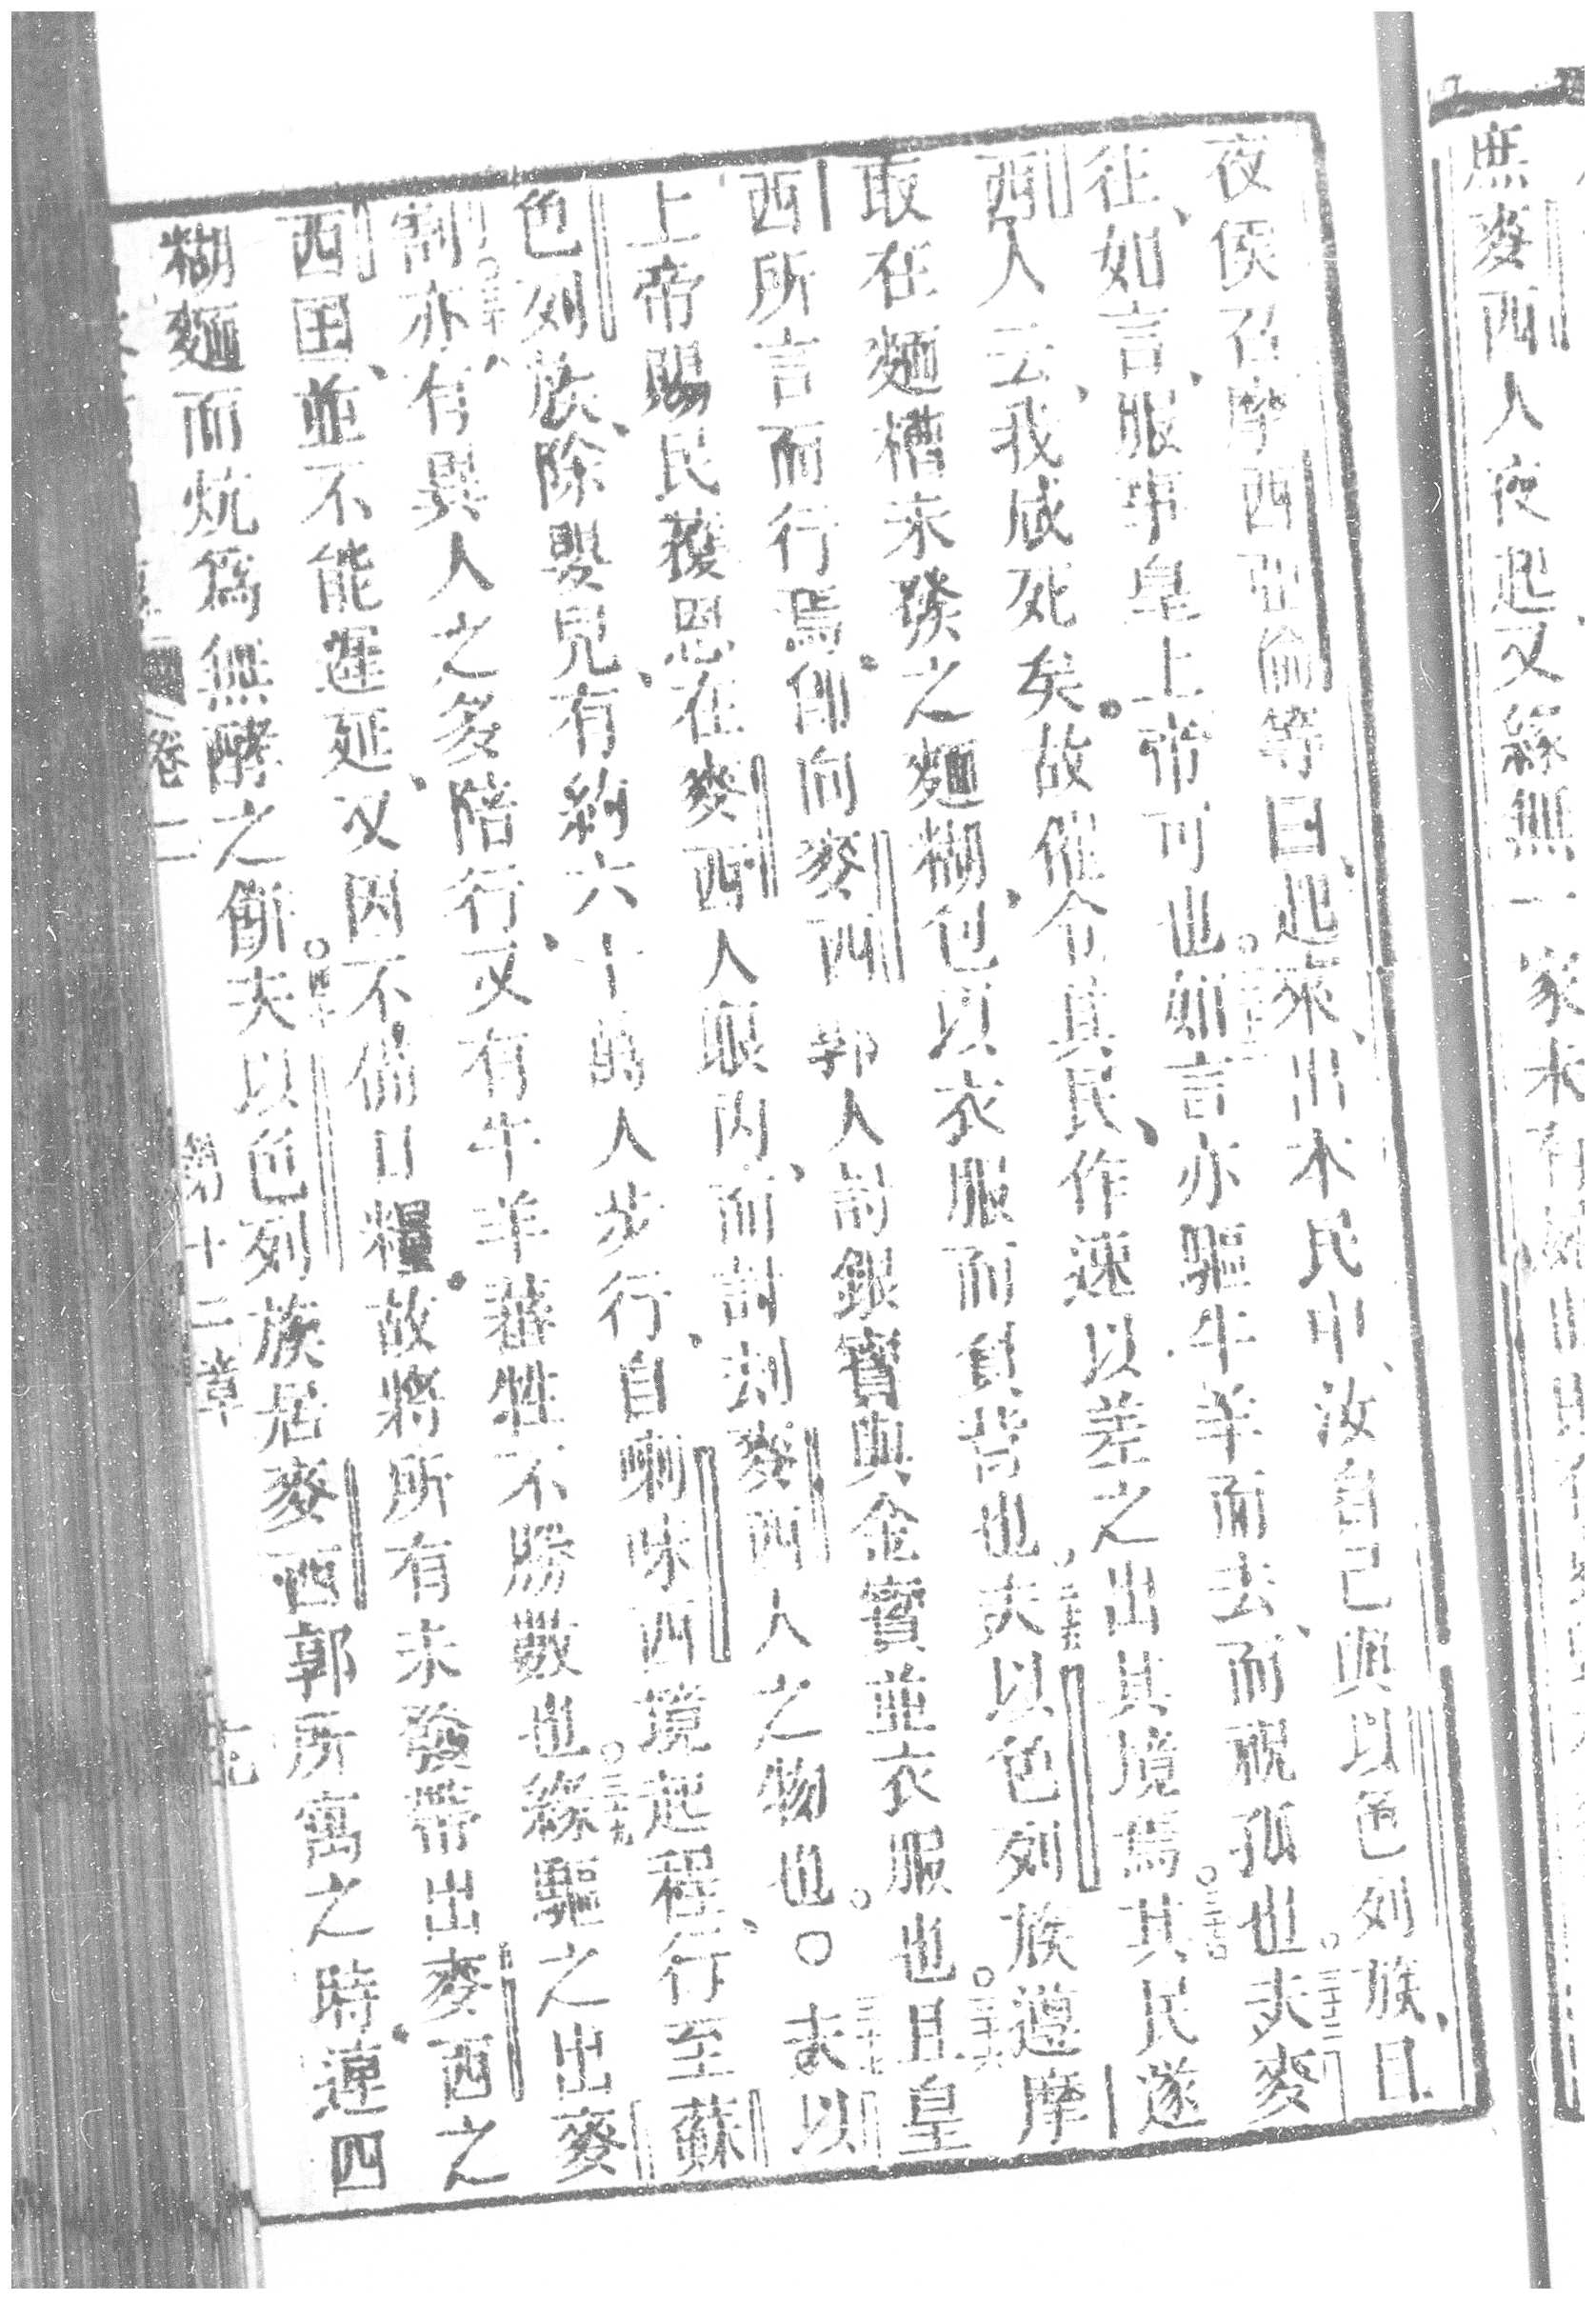 庶麥西人夜起又緣無一家未有
夜侯召摩西亞倫等曰起來出本民中汝自己與以色列族且
往如言服事皇上帝可也○三十二如言亦驅牛羊而去而祝孤也○三十三夫麥
西人云我咸死矣故催令其民作速以差之出其境焉○三十四其民遂
取在麵槽未發之麵糊包以衣服而負肩也○三十五夫以色列族遵摩
西所言而行焉即向麥西郭人討銀寶與金寶並衣服也○三十六且皇
上帝賜民獲恩在麥西人眼內而討到麥西人之物也○○三十七夫以
色列族除嬰兒有約六十萬人步行自喇味西境起程行至蘇
割○三十八亦有異人之多陪行又有牛羊蕃牲不勝數也○三十九緣驅之出麥
西田並不能遲延又因不備口糧故將所有未發帶出麥西之
糊麵而炕為無酵之餅○四十夫以色列族居麥西郭所寓之時連四
卷二 第十二章